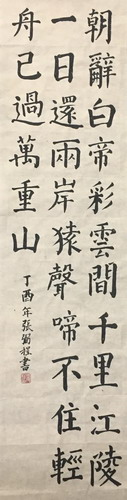 朝辭白帝彩雲間千里江陵
一日還兩岸猿聲啼不住輕
舟已過萬重山
丁酉年張弼程書